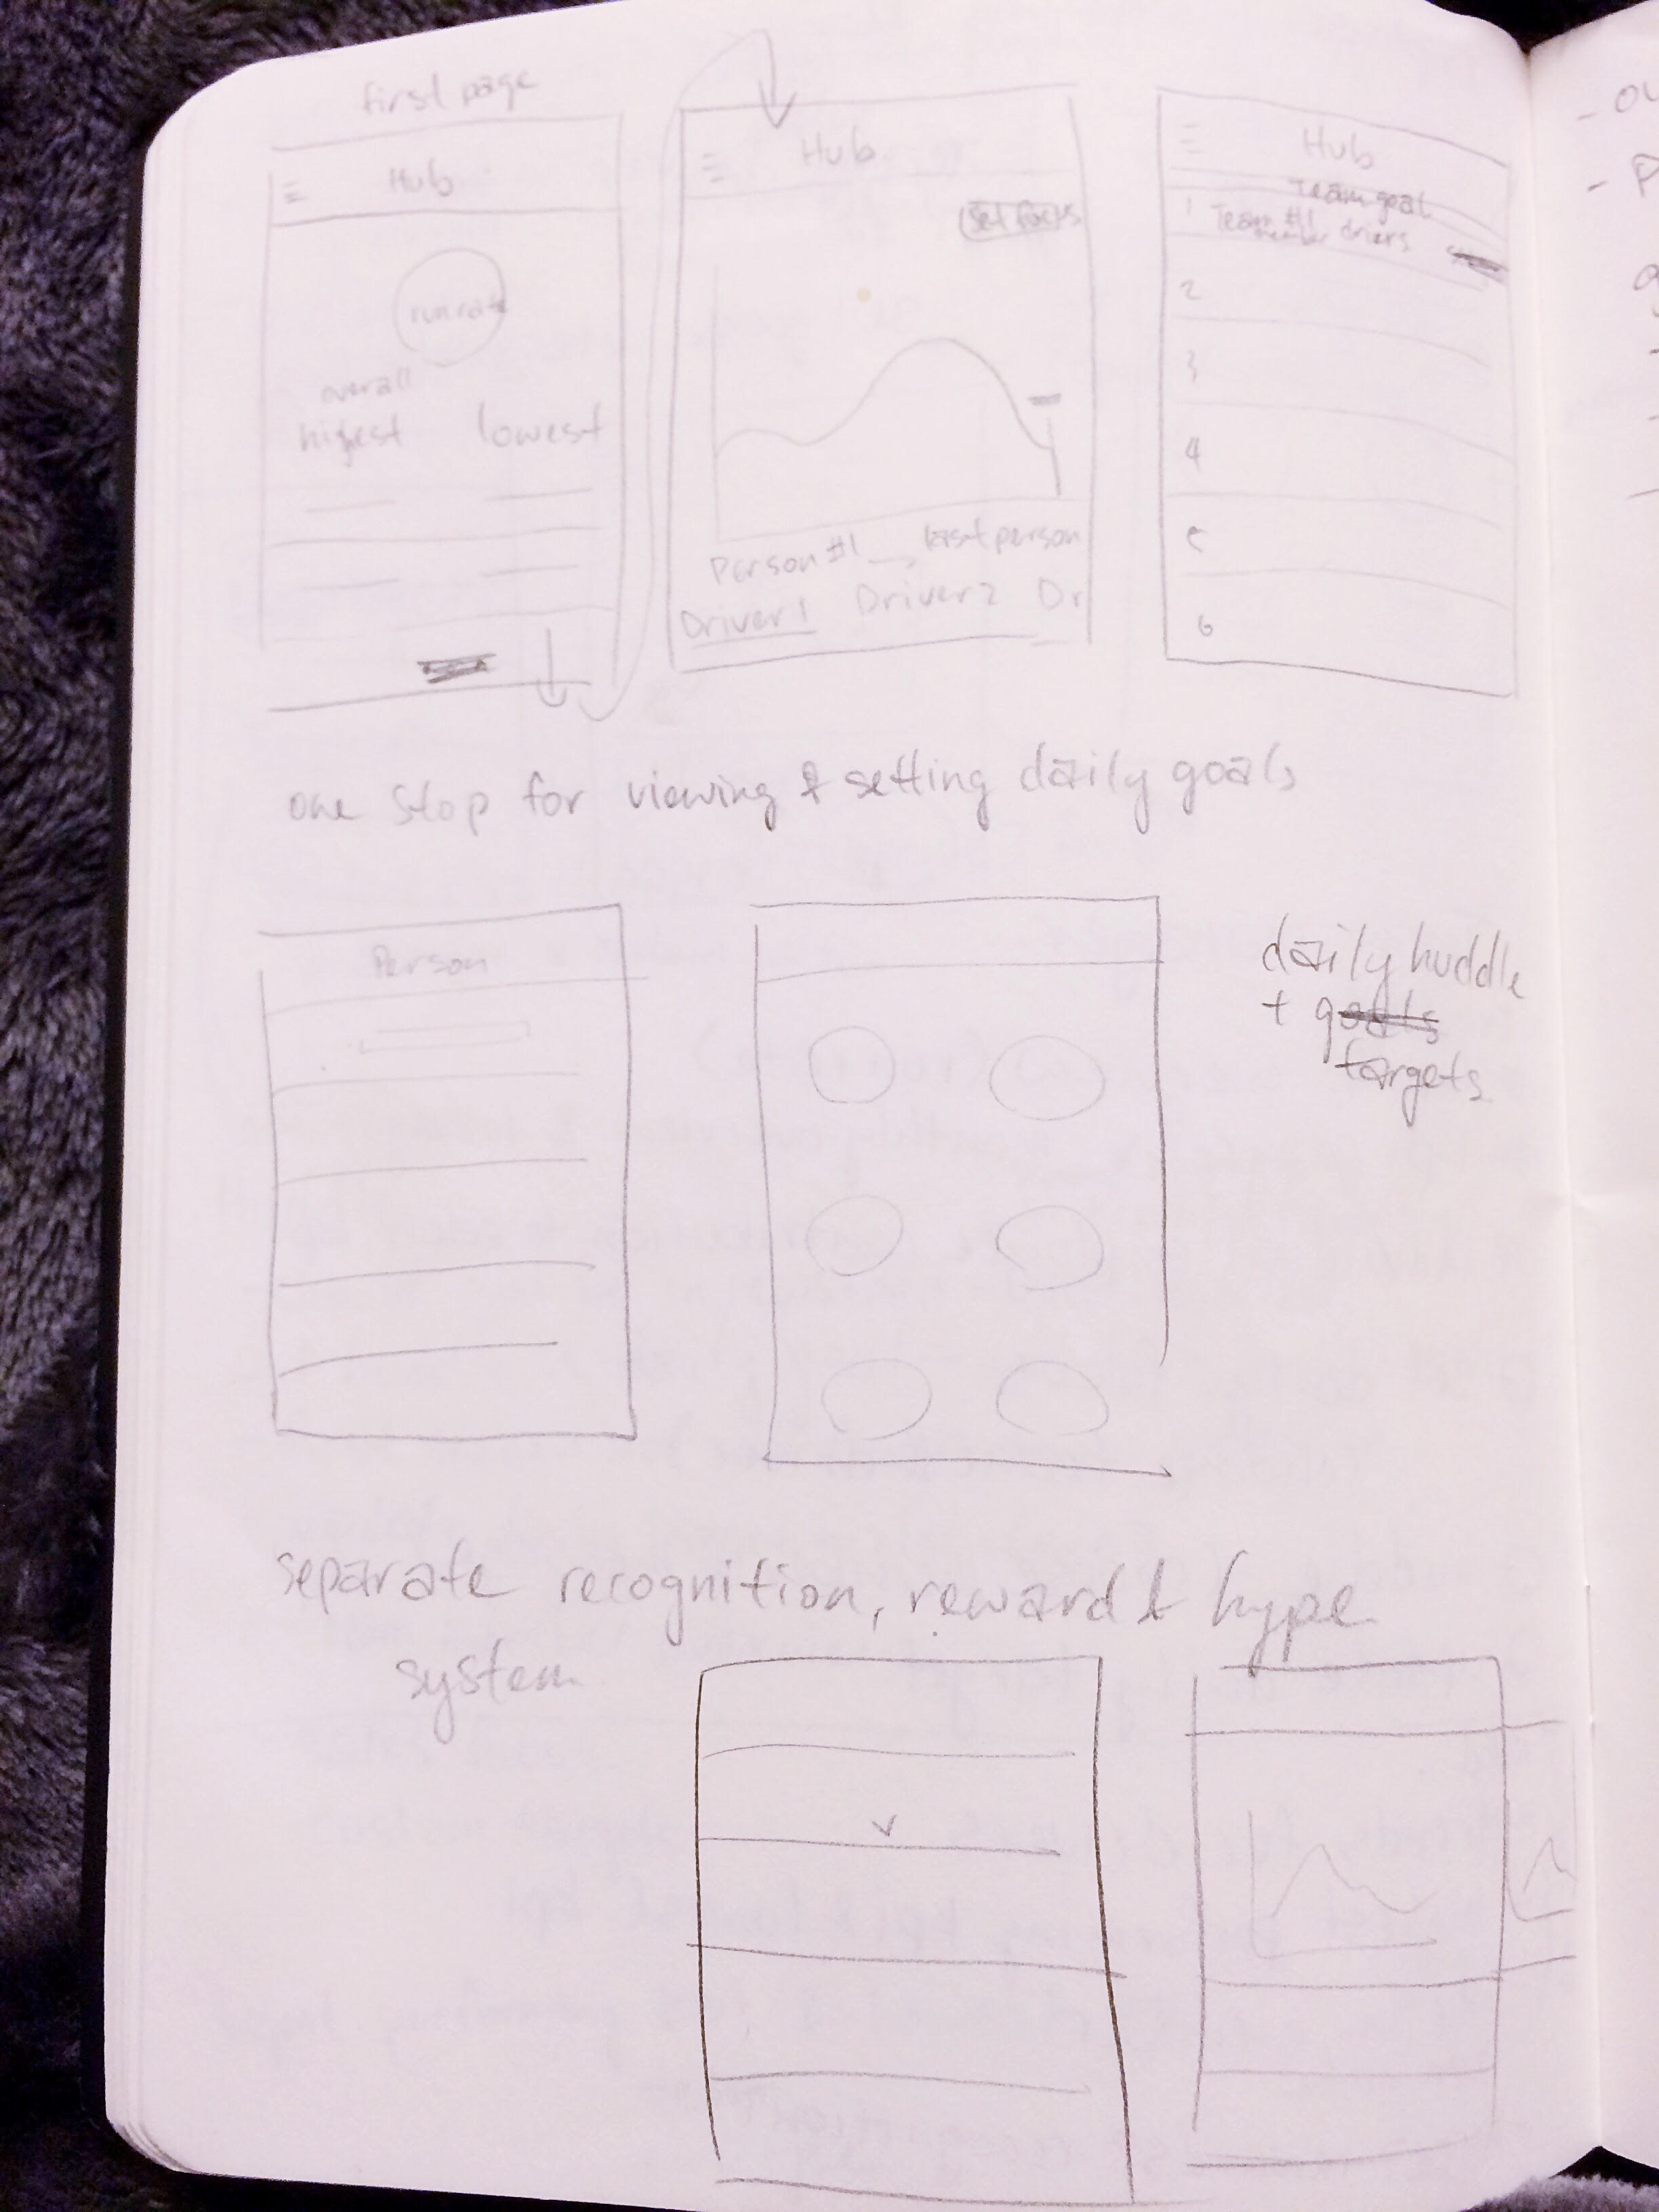 first page
Hub
run rate
overall
highest lowest
Hub
Set focus
Person #1 → last person
Driver 1 Driver 2 Dr
Hub
Team goal
1 Team #1 drivers
member
2
3
4
5
6
one stop for viewing & setting daily goals
Person
daily huddle
+ goals
targets
separate recognition, reward & hype
system
- ou
- P